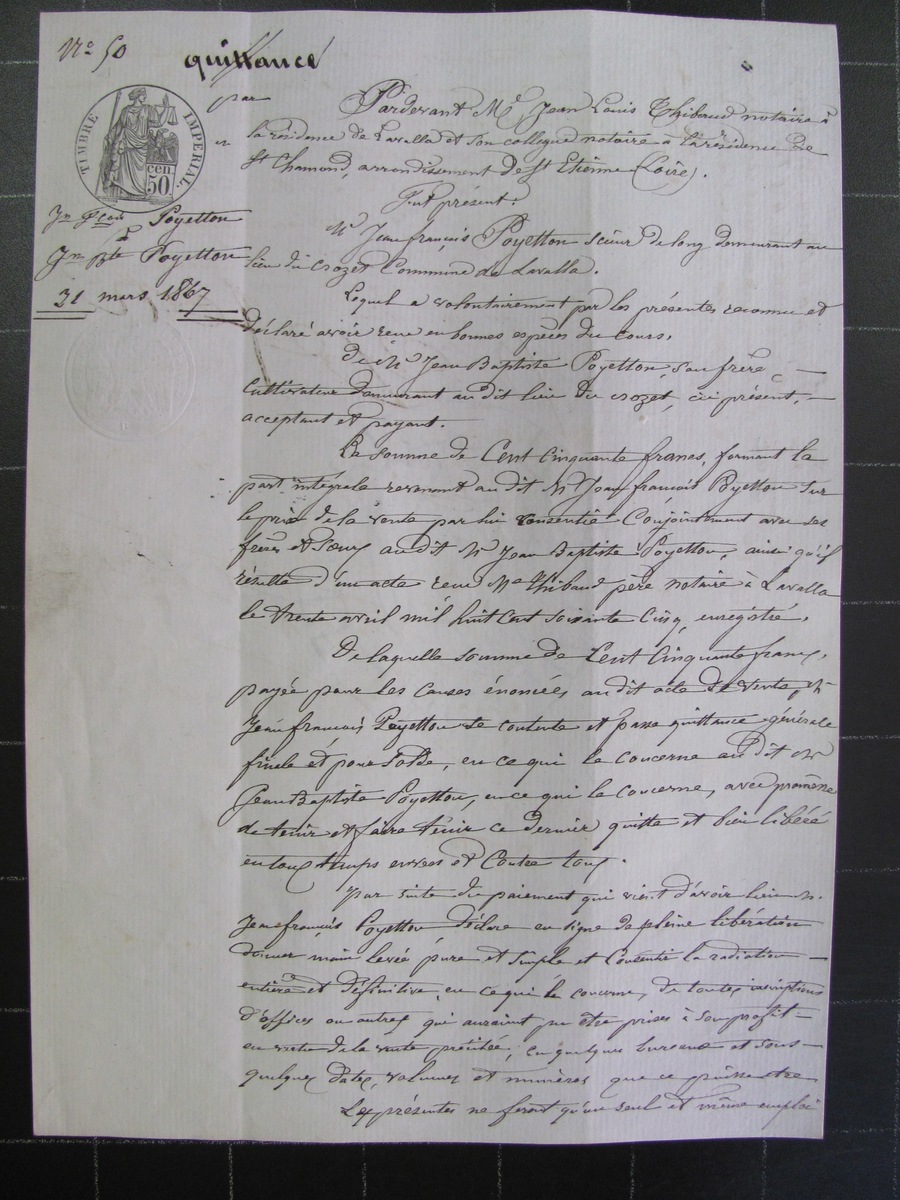 N° 50
quittance
par
TIMBRE IMPERIAL.
50 cen.
Jn Fçois Poyetton
à
Jn Bte Poyetton
31 mars 1867
Pardevant Me Jean Louis Thibaud notaire à
la résidence de Lavalla et son collègue notaire à la résidence de
St Chamond, arrondissement de St Etienne (Loire).
Fut présent:
Mr Jean françois Poyetton Scieur de long demeurant au
lieu du Crozet Commune de Lavalla.
Lequel a volontairement par les présentes reconnu et
déclaré avoir reçu en bonnes espèces du cours,
de Mr Jean Baptiste Poyetton, son frère,
Cultivateur demeurant au dit lieu du Crozet, ici présent,
acceptant et payant.
La somme de Cent Cinquante francs, formant la
part intégrale revenant au dit Mr Jean françois Poyetton sur
le prix de la vente par lui consentie Conjointement avec ses
frères et Sœurs au dit Mr Jean Baptiste Poyetton, ainsi qu'il
résulte d'un acte reçu Me Thibaud père notaire à Lavalla
le trente avril mil huit cent soixante cinq, enregistré.
De laquelle somme de Cent Cinquante francs,
payée pour les causes énoncées au dit acte de vente, Mr
Jean françois Poyetton se contente et passe quittance générale
finale et pour solde, en ce qui le concerne au dit Mr
Jean Baptiste Poyetton, en ce qui le concerne, avec promesse
de tenir et faire tenir ce dernier quitte et bien libéré
en tous temps envers et Contre tous.
Par suite du paiement qui vient d'avoir lieu Mr
Jean françois Poyetton déclare en signe de pleine libération
donner main levée pure et simple et Consentir la radiation
entière et définitive, en ce qui le concerne, de toutes inscriptions
d'offices ou autres qui auraient pu être prises à son profit
en vertu de la vente précitée, en quelques bureaux et sous
quelques dates, volumes et numéros que ce puisse être
Les présentes ne feront qu'un seul et même emploi